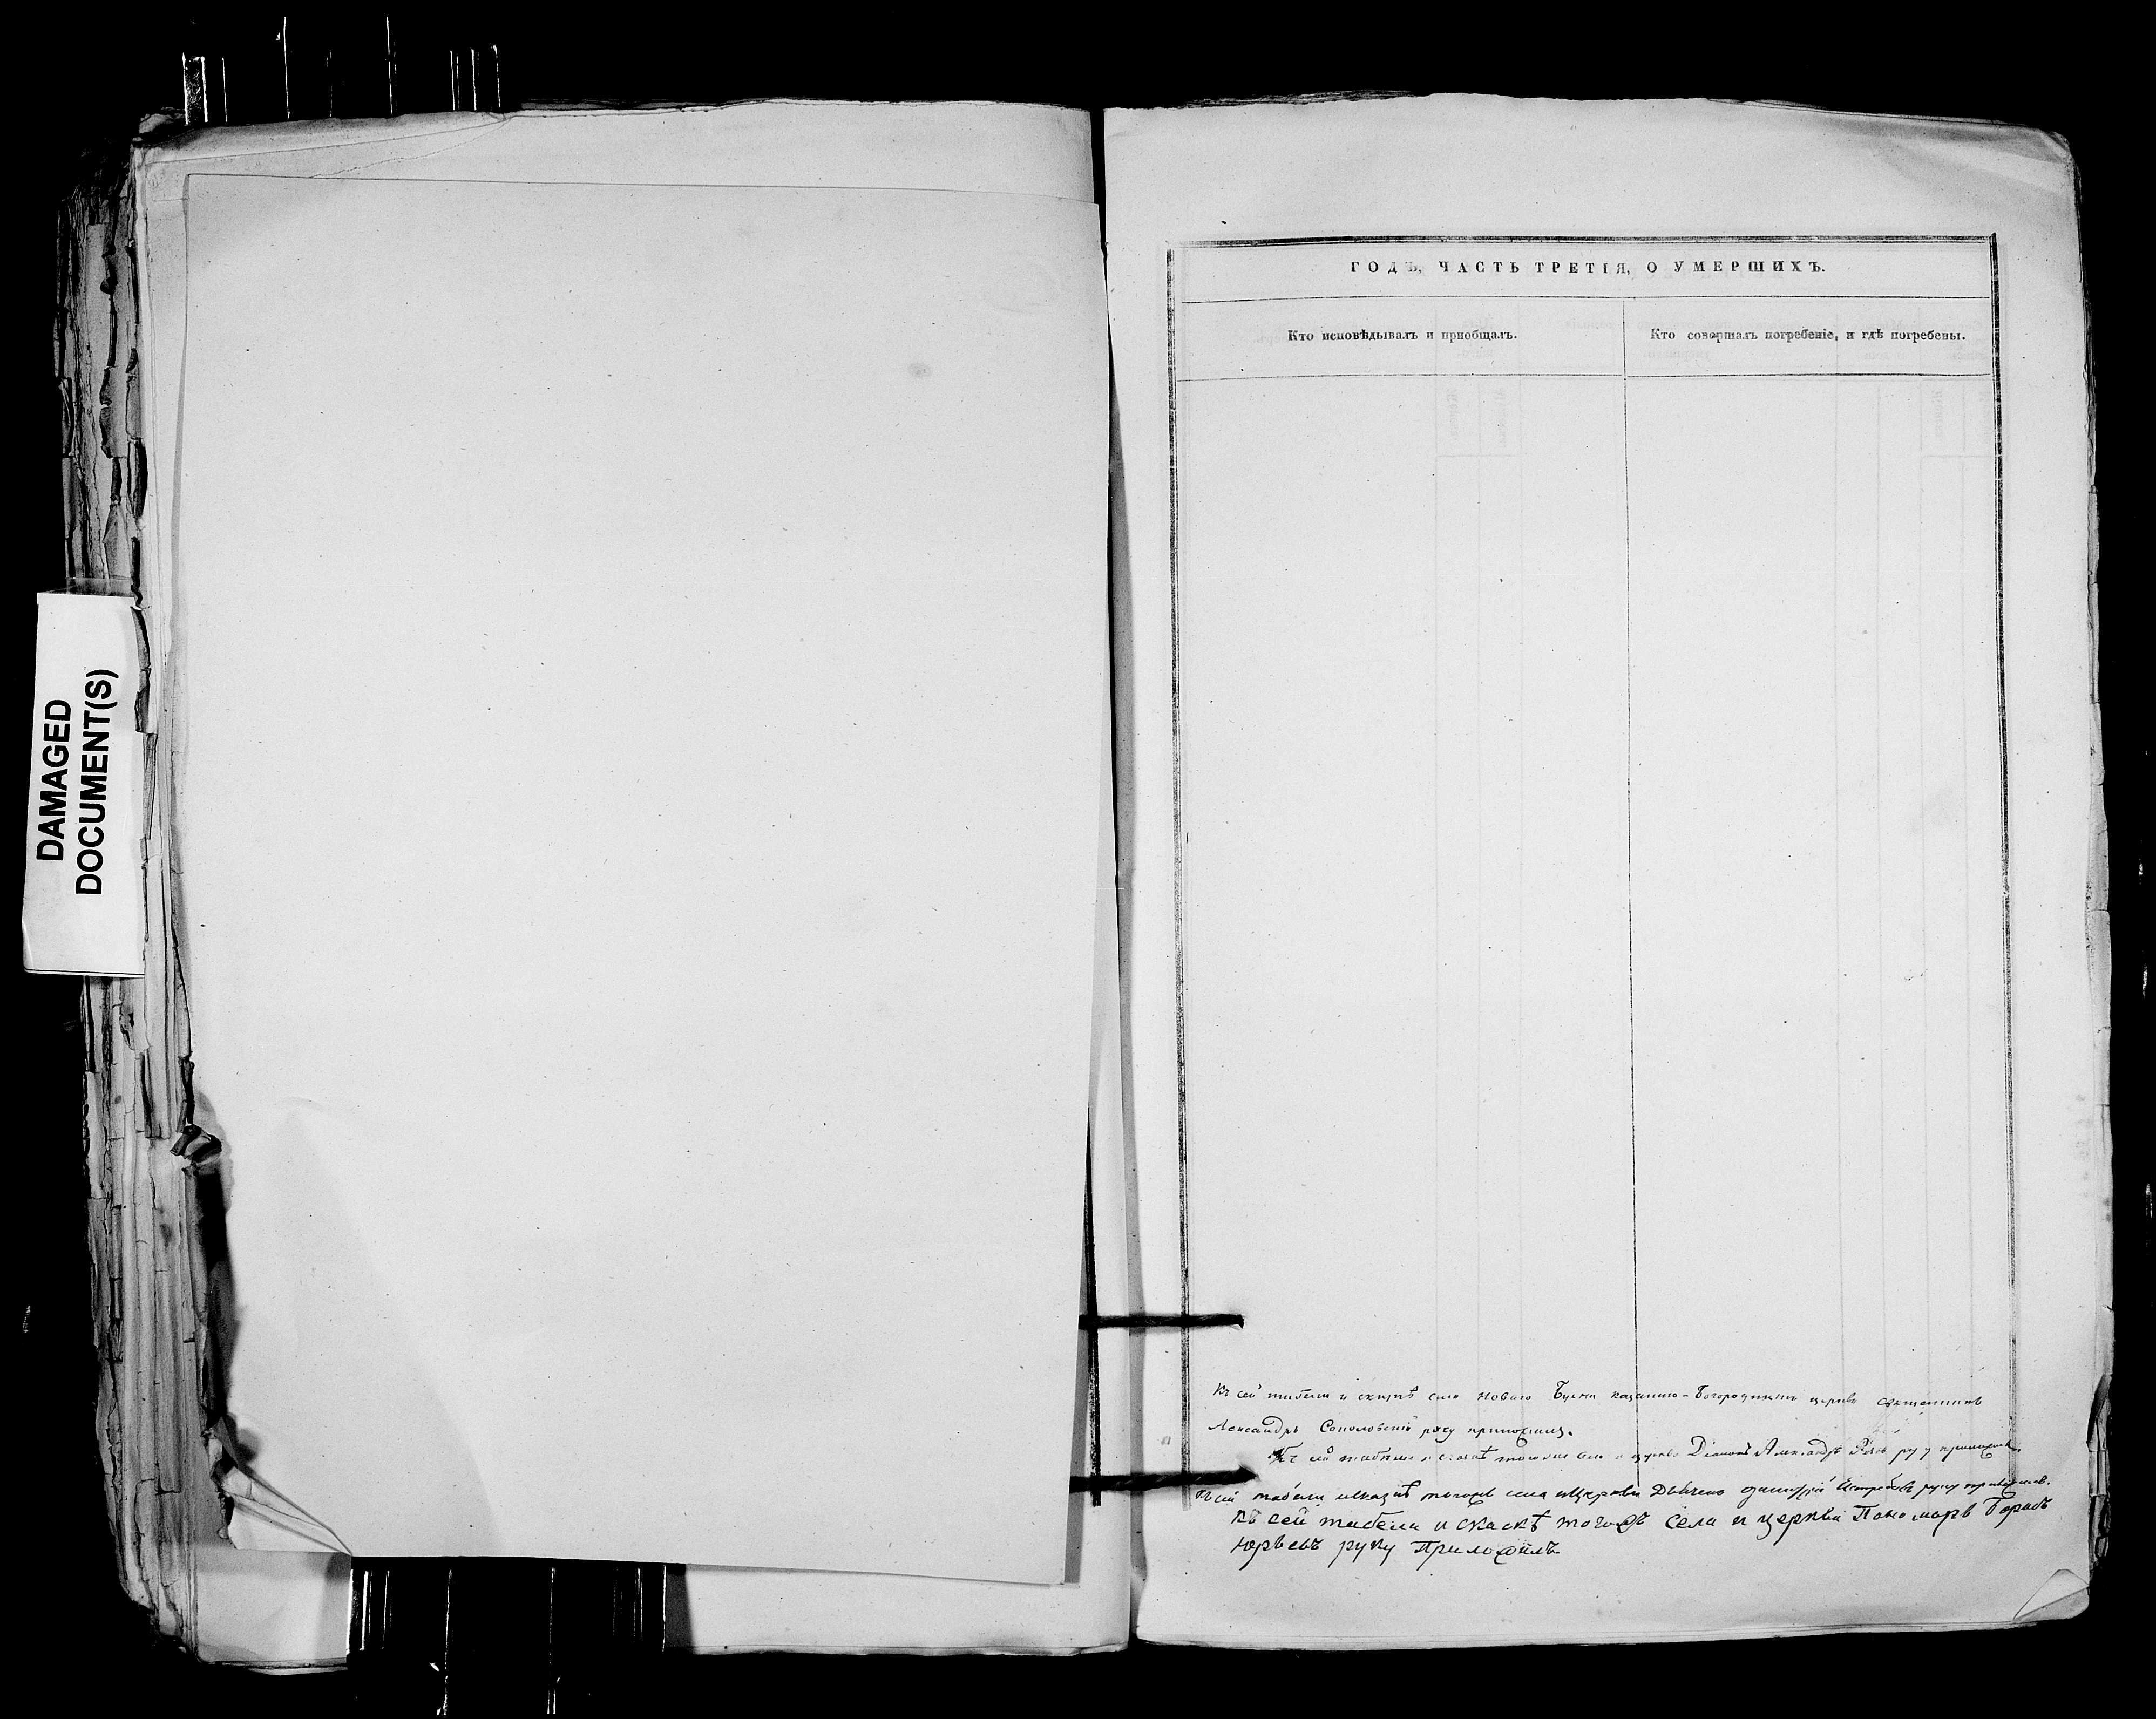 DAMAGED
DOCUMENT(S)
ГОДЪ, ЧАСТЬ ТРЕТІЯ, О УМЕРШИХЪ.
Кто исповѣдывалъ и пріобщалъ.
Кто совершалъ погребеніе, и гдѣ погребены.
Къ сей табели и скаскѣ села Новаго Казанско-Богородицкой церкви священникъ
Александръ Соколовскій руку приложилъ.
Къ сей табели и скаскѣ тогожъ села и церкви Діаконъ Александръ руку приложилъ.
Къ сей табели искаскѣ тогожъ села ицеркви Дьячекъ руку приложилъ.
Къ сей табели и скаскѣ тогожъ села и церкви Пономарь Борисъ
Юрьевъ руку Приложилъ